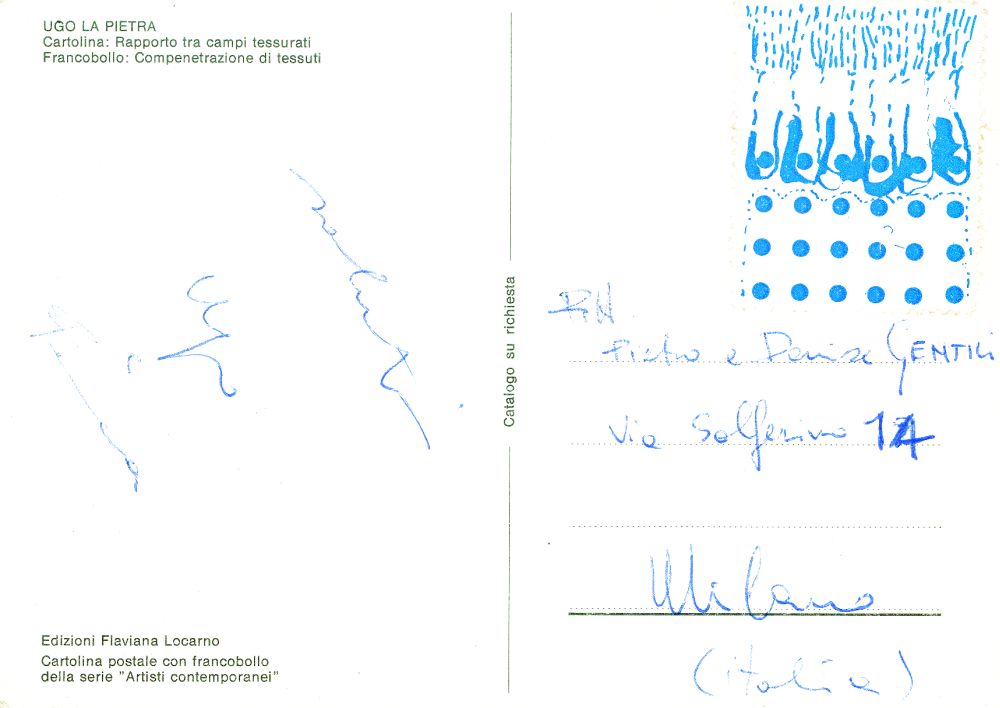 UGO LA PIETRA
Cartolina: Rapporto tra campi tessurati
Francobollo: Compenetrazione di tessuti
Catalogo su richiesta
Pietro e Denise GENTILI
Via Solferino 14
Milano
(italia)
Edizioni Flaviana Locarno
Cartolina postale con francobollo
della serie "Artisti contemporanei"